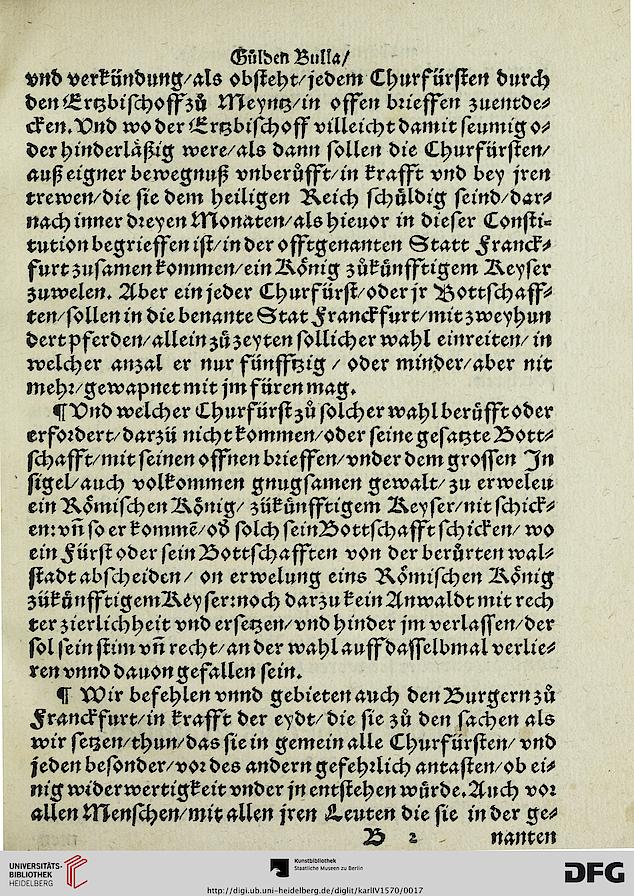 Gülden Bulla/
vnd verkündung/als obsteht/jedem Churfürsten durch
den Ertzbischoff zů Meyntz/in offen brieffen zuentde⸗
cken. Vnd wo der Ertzbischoff villeicht damit seumig o⸗
der hinderläßig were/als dann sollen die Churfürsten/
auß eigner bewegnuß vnberůfft/in krafft vnd bey jren
trewen/die sie dem heiligen Reich schůldig seind/dar⸗
nach inner dreyen Monaten/als hieuor in dieser Consti⸗
tution begrieffen ist/in der offtgenanten Statt Franck⸗
furt zusamen kommen/ein König zůkünfftigem Keyser
zuwelen. Aber ein jeder Churfürst/oder jr Bottschaff⸗
ten/sollen in die benante Stat Franckfurt/mit zweyhun
dert pferden/allein zů zeyten sollicher wahl einreiten/in
welcher anzal er nur fünfftzig / oder minder/aber nit
mehr/gewapnet mit jm füren mag.
¶ Vnd welcher Churfürst zů solcher wahl berůfft oder
erfordert/darzů nicht kommen/oder seine gesatzte Bott⸗
schafft/mit seinen offnen brieffen/vnder dem grossen In
sigel/auch volkommen gnugsamen gewalt/zu erweleu
ein Römischen König/ zůkünfftigem Keyser/nit schick⸗
en:vñ so er kommē/oď solch sein Bottschafft schicken/ wo
ein Fürst oder sein Bottschafften von der berůrten wal⸗
stadt abscheiden/ on erwelung eins Römischen König
zůkünfftigem Keyser:noch darzu kein Anwaldt mit rech
ter zierlichheit vnd ersetzen/vnd hinder jm verlassen/der
sol sein stim vñ recht/an der wahl auff dasselbmal verlie⸗
ren vnnd dauon gefallen sein.
¶ Wir befehlen vnnd gebieten auch den Burgern zů
Franckfurt/in krafft der eydt/die sie zů den sachen als
wir setzen/thun/das sie in gemein alle Churfürsten/ vnd
jeden besonder/vor des andern gefehrlich antasten/ob ei⸗
nig widerwertigkeit vnder jn entstehen würde. Auch vor
allen Menschen/mit allen jren Leuten die sie in der ge⸗
B 2 nanten
UNIVERSITÄTS-
BIBLIOTHEK
HEIDELBERG
Kunstbibliothek
Staatliche Museen zu Berlin
http://digi.ub.uni-heidelberg.de/diglit/karlIV1570/0017
DFG